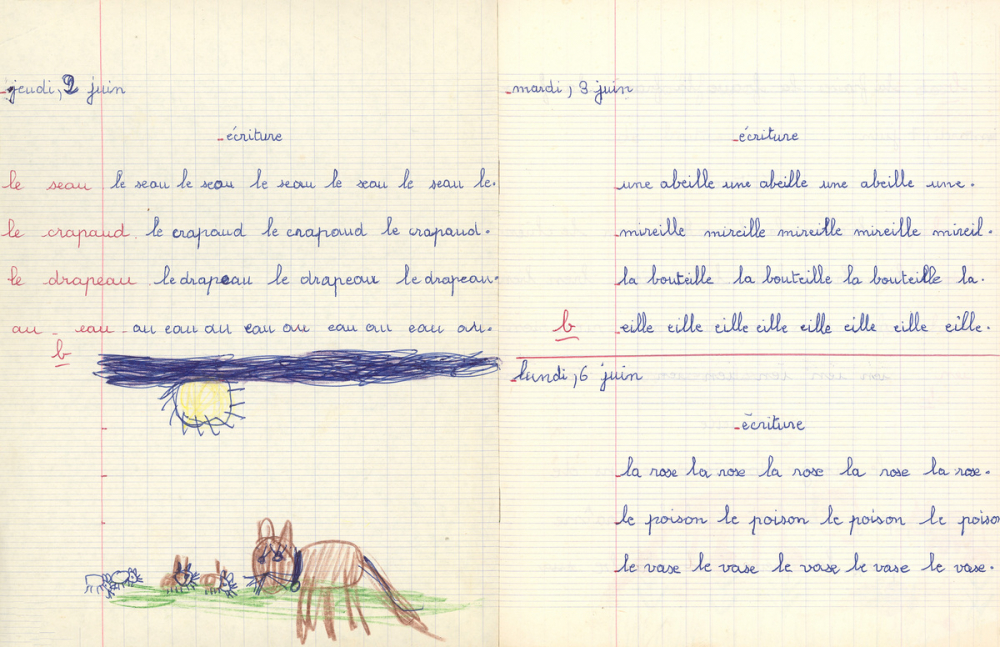 jeudi, 2 juin
écriture
le seau le seau le seau le seau le seau le seau le.
le crapaud le crapaud le crapaud le crapaud.
le drapeau le drapeau le drapeau le drapeau.
au - eau - au eau au eau au eau au eau au.
b
mardi, 3 juin
écriture
une abeille une abeille une abeille une.
mireille mireille mireille mireille mireil.
la bouteille la bouteille la bouteille la.
b eille eille eille eille eille eille eille eille.
lundi, 6 juin
écriture
la rose la rose la rose la rose la rose.
le poison le poison le poison le poiso
le vase le vase le vase le vase le vase.